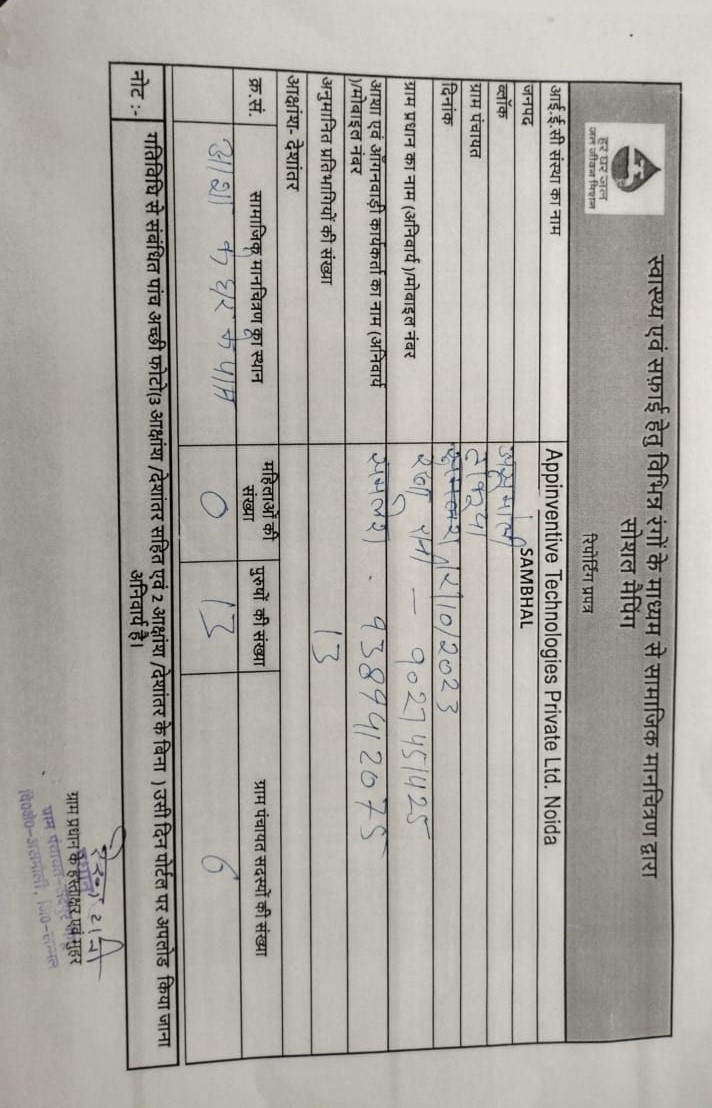 हर घर जल
जल जीवन मिशन
स्वास्थ्य एवं सफ़ाई हेतु विभिन्न रंगों के माध्यम से सामाजिक मानचित्रण द्वारा
सोशल मैपिंग
रिपोर्टिंग प्रपत्र
आई.ई.सी संस्था का नाम Appinventive Technologies Private Ltd. Noida
जनपद SAMBHAL
ब्लॉक असमोली
ग्राम पंचायत
दिनांक /10/2023
ग्राम प्रधान का नाम (अनिवार्य )/मोबाइल नंबर - 9027451425
आशा एवं आँगनवाड़ी कार्यकर्ता का नाम (अनिवार्य
)/मोबाइल नंबर 9389412075
अनुमानित प्रतिभागियों की संख्या 13
आक्षांश- देशांतर
क्र.सं. सामाजिक मानचित्रण का स्थान महिलाओं की संख्या पुरुषों की संख्या ग्राम पंचायत सदस्यों की संख्या
आशा के घर के पास 0 13 6
नोट :- गतिविधि से संबंधित पांच अच्छी फोटो(3 आक्षांश /देशांतर सहित एवं 2 आक्षांश /देशांतर के बिना ) उसी दिन पोर्टल पर अपलोड किया जाना
अनिवार्य है।
ग्राम प्रधान के हस्ताक्षर एवं मुहर